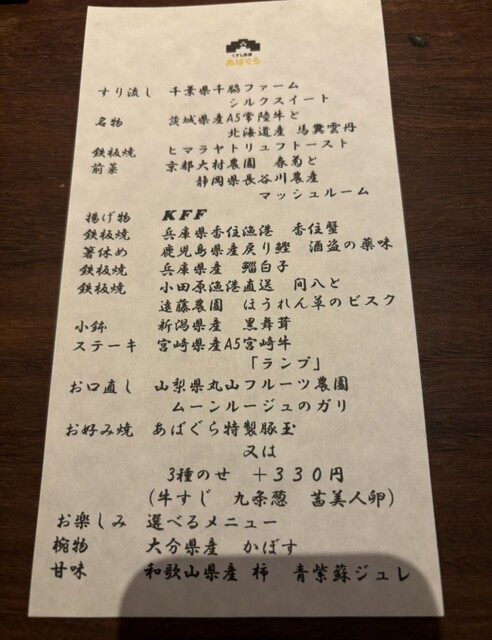 くずし割烹
あばぐら
すり流し 千葉県千脇ファーム
シルクスイート
名物 茨城県産A5常陸牛と
北海道産 馬糞雲丹
鉄板焼 ヒマラヤトリュフトースト
前菜 京都大村農園 春菊と
静岡県長谷川農産
マッシュルーム
揚げ物 KFF
鉄板焼 兵庫県香住漁港 香住蟹
箸休め 鹿児島県産戻り鰹 酒盗の薬味
鉄板焼 兵庫県産 鯔白子
鉄板焼 小田原漁港直送 間八と
遠藤農園 ほうれん草のビスク
小鉢 新潟県産 黒舞茸
ステーキ 宮崎県産A5宮崎牛
「ランプ」
お口直し 山梨県丸山フルーツ農園
ムーンルージュのガリ
お好み焼 あばぐら特製豚玉
又は
3種のせ +330円
(牛すじ 九条葱 茜美人卵)
お楽しみ 選べるメニュー
椀物 大分県産 かぼす
甘味 和歌山県産 柿 青紫蘇ジュレ